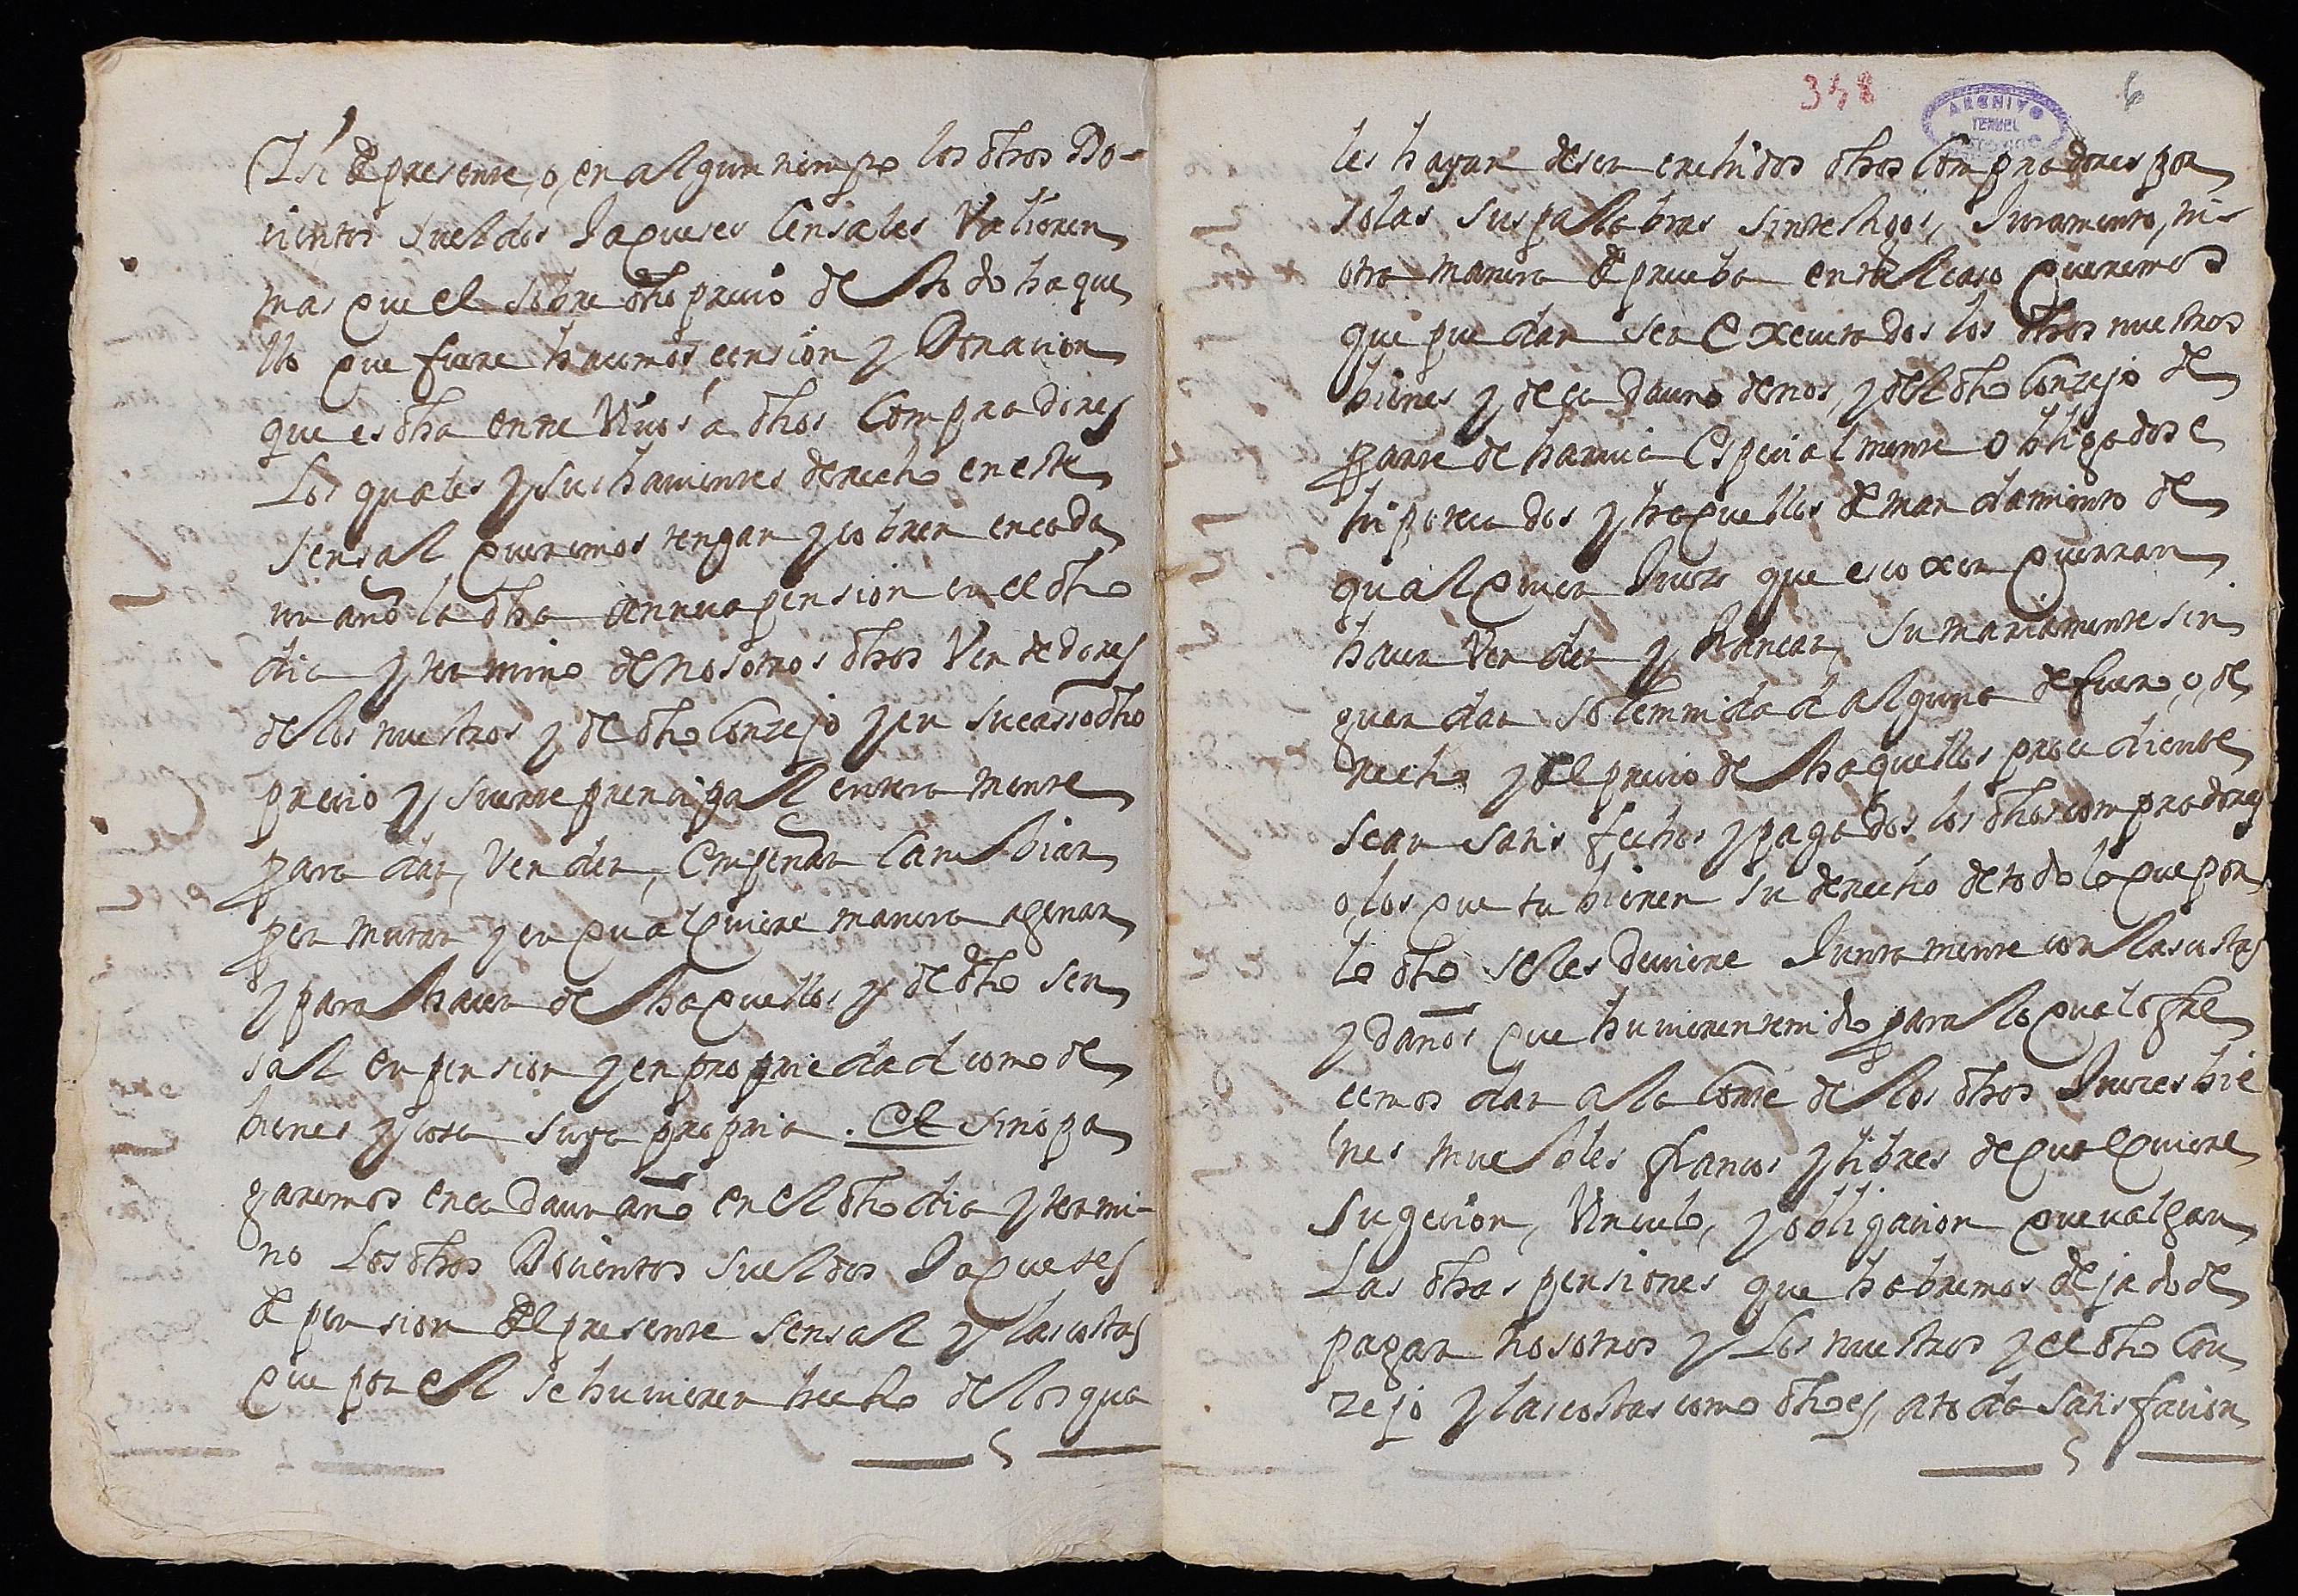 Y si de presente, o, en algun tiempo los dhos Do-
cientos sueldos Jaqueses Censales Valieren
mas que el sobre dho precio de todo haque
llo que fuere hacemos cension y Donacion
que es dha entre Vivos a dhos Compradores
Los quales y sus havientes derecho en este
sensal queremos tengan y cobren en cada
un año la dha annua pension en el dho
dia y termino de nosotros dhos Vendedores
de los nuestros y de dho Conzejo y en su casso dho
precio y suerte prencipal entera mente
para dar, Vender, Empeñar Cambiar
per mutar y en qualquiere manera agenar
y para hacer de haquellos y de dho sen
sal en pension y en propriedad como de
bienes y cosa suya propria. Et sino pa
garemos en cada un año en el dho dia y termi-
no Los dhos Docientos sueldos Jaqueses
de pension del presente sensal y las costas
que por el se huvieren hecho de los qua
348 6
ARCHIVO
TERUEL
les hayan de ser crehidos dhos Compradores por
solas sus palabras sin testigos, Juramento, ni
otra manera de prueba en tal caso queremos
que puedan ser executados los dhos nuestros
bienes y de cada uno de nos, y del dho Conzejo de
parte de harriba Especialmente obligados e
hipotecados y haquellos de mandamiento de
qualquier Juez que escoxer querran
hacer Vender y trancar, sumariamente sin
guardar solemnidad alguna de fuero, o, de
recho y del precio de haquellos procediente
sean satisfechos y pagados los dhos compradores
o, los que tubieren su derecho de todo lo que por
lo dho se les deviere Junta mente con las costas
y daños que huvieren tenido para lo qual ofre
cemos dar a la Corte de los dhos Jueces bie
nes muebles francos y libres de qualquiere
sugecion, Vinculo, y obligacion que valgan
Las dhas pensiones que habremos dejado de
pagar nosotros y Los nuestros y el dho Con
zejo y las costas como dho es, a toda satisfacion